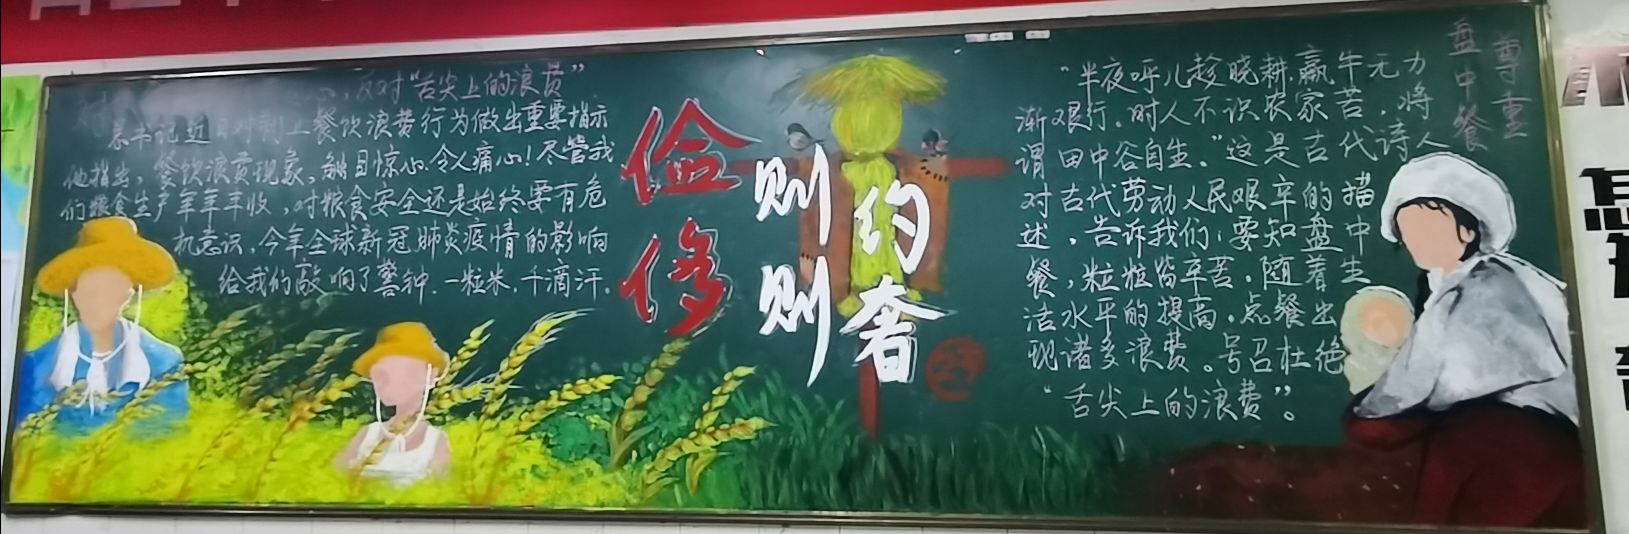 反对“舌尖上的浪费”
总书记近日对制止餐饮浪费行为做出重要指示
他指出，餐饮浪费现象，触目惊心、令人痛心！尽管我
们粮食生产年年丰收，对粮食安全还是始终要有危
机意识，今年全球新冠肺炎疫情的影响
给我们敲响了警钟.一粒米，千滴汗.
俭则约
侈则奢
尊重
盘中餐
“半夜呼儿趁晓耕，羸牛无力
渐艰行。时人不识农家苦，将
谓田中谷自生。”这是古代诗人
对古代劳动人民艰辛的描
述，告诉我们：要知盘中
餐，粒粒皆辛苦。随着生
活水平的提高，点餐出
现诸多浪费。号召杜绝
“舌尖上的浪费”。